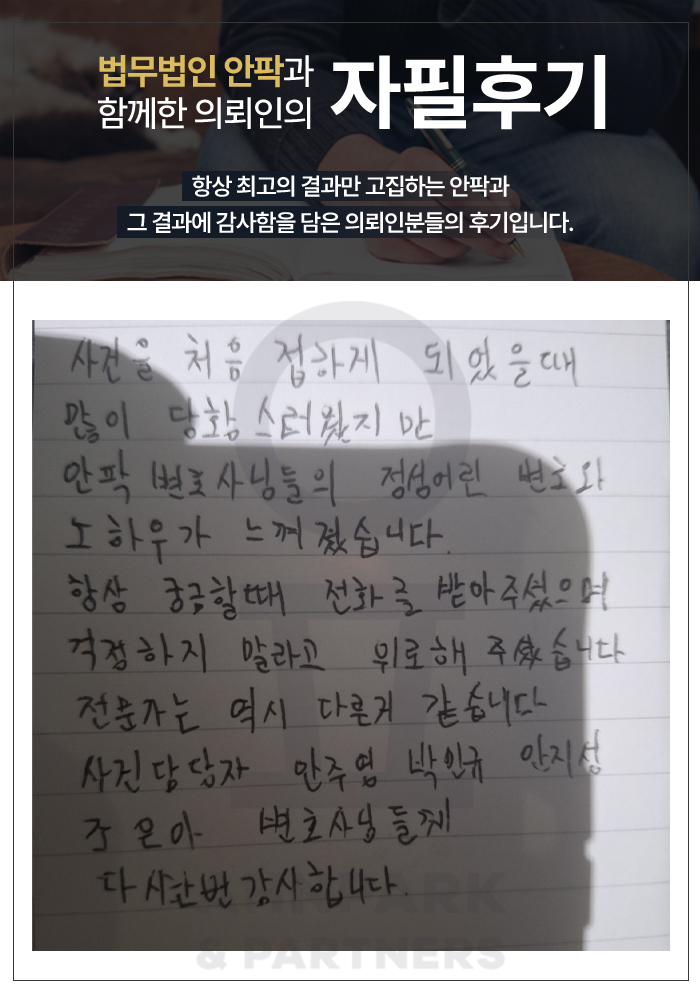 법무법인 안팍과
함께한 의뢰인의
자필후기
항상 최고의 결과만 고집하는 안팍과
그 결과에 감사함을 담은 의뢰인분들의 후기입니다.
사건을 처음 접하게 되었을때
많이 당황스러웠지만
안팍 변호사님들의 정성어린 변호와
노하우가 느껴졌습니다.
항상 궁금할때 전화를 받아주셨으며
걱정하지 말라고 위로해 주셨습니다
전문가는 역시 다른거 같습니다
사건담당자 안주영 박인규 안지성
조은아 변호사님들께
다시한번 감사합니다.
& PARTNERS